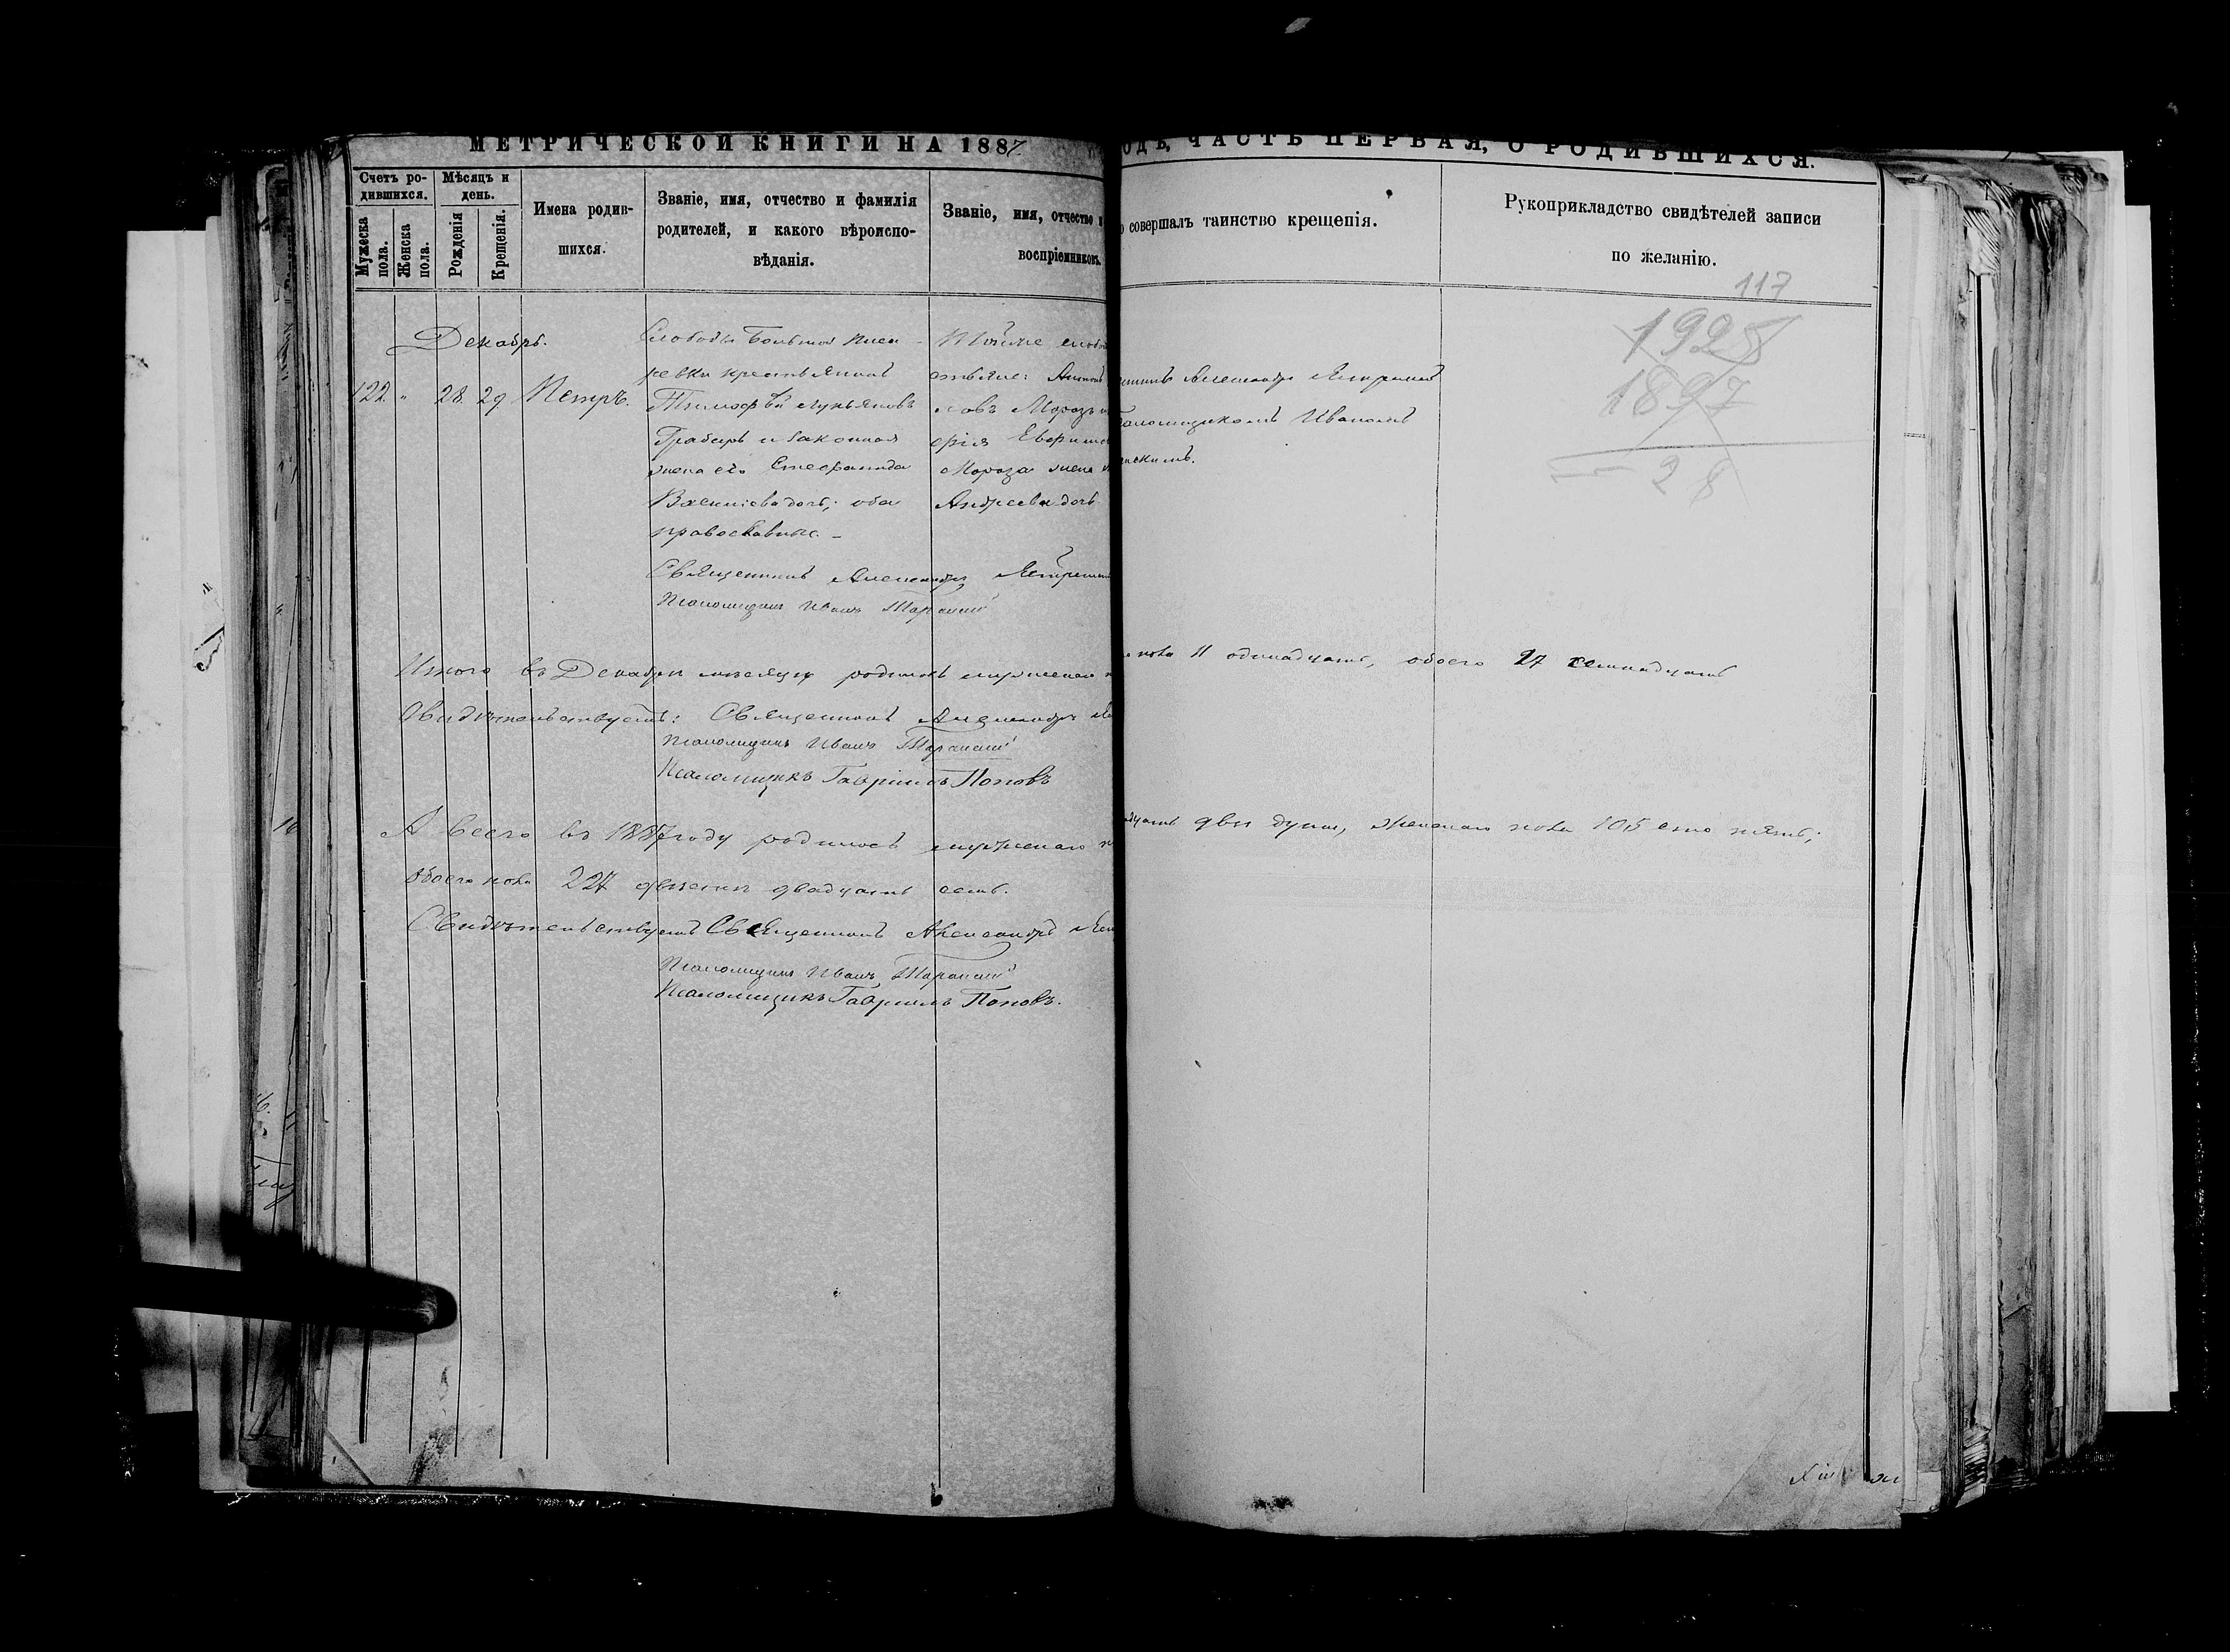 МЕТРИЧЕСКОЙ КНИГИ НА 1887
ОДЪ, ЧАСТЬ ПЕРВАЯ, О РОДИВШИХСЯ.
Счетъ ро-
дившихся.
Мужеска
пола.
Женска
пола.
Мѣсяцъ и
день.
Рожденія
Крещенія.
Имена родив-
шихся.
Званіе, имя, отчество и фамилія
родителей, и какого вѣроиспо-
вѣданія.
Званіе, имя, отчество
воспріемниковъ.
совершалъ таинство крещенія.
Рукоприкладство свидѣтелей записи
по желанію.
117
1928
1897
28
Декабрь.
122 " 28 29 Петръ.
Слободы Большой Писа-
ревки крестьянинъ
Тимофѣй Лукьяновъ
Грабарь и законная
жена его Стефанида
дочь; оба
православные.
Тойже
Антонъ
Морозъ
Мороза жена
Андреева дочь
Александръ
Иваномъ
Священникъ Александръ
Псаломщикъ Иванъ
Итого въ Декабрѣ мѣсяцѣ родилось мужескаго
пола 11 одинадцать, обоего 27
Свидѣтельствуетъ: Священникъ Александръ
Псаломщикъ Иванъ
Псаломщикъ Гавріилъ Поповъ
А всего въ 1887 году родилось мужескаго
двѣ души, женскаго пола 105 сто пять;
обоего пола 227 двѣсти двадцать семь.
Свидѣтельствуетъ Священникъ Александръ
Псаломщикъ Иванъ
Псаломщикъ Гавріилъ Поповъ.